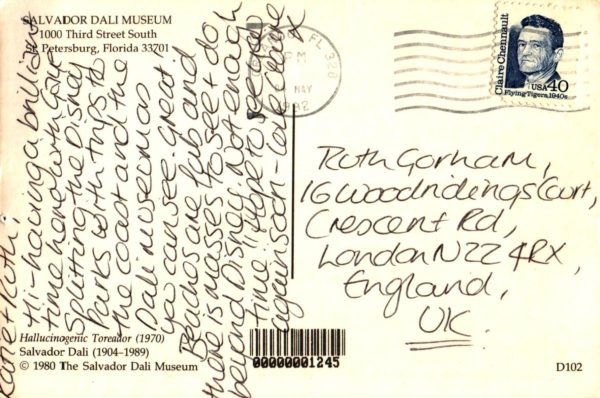 SALVADOR DALI MUSEUM
1000 Third Street South
St. Petersburg, Florida 33701
Katie + Ruth,
Hi - having a brilliant
time here with
Splitting the Disney
Parks with trips to
the coast and the
Dali museum as
you can see. Great
Beaches are fab and
there is masses to see + do
beyond Disney. Not enough
time!! Hope to see
again soon - love
x
Hallucinogenic Toreador (1970)
Salvador Dali (1904–1989)
© 1980 The Salvador Dali Museum
FL 328
PM
MAY
1992
Claire Chennault
USA 40
Flying Tigers, 1940s
Ruth Gorham,
16 Woodridings Court,
Crescent Rd,
London N22 4RX,
England,
UK.
00000001245
D102